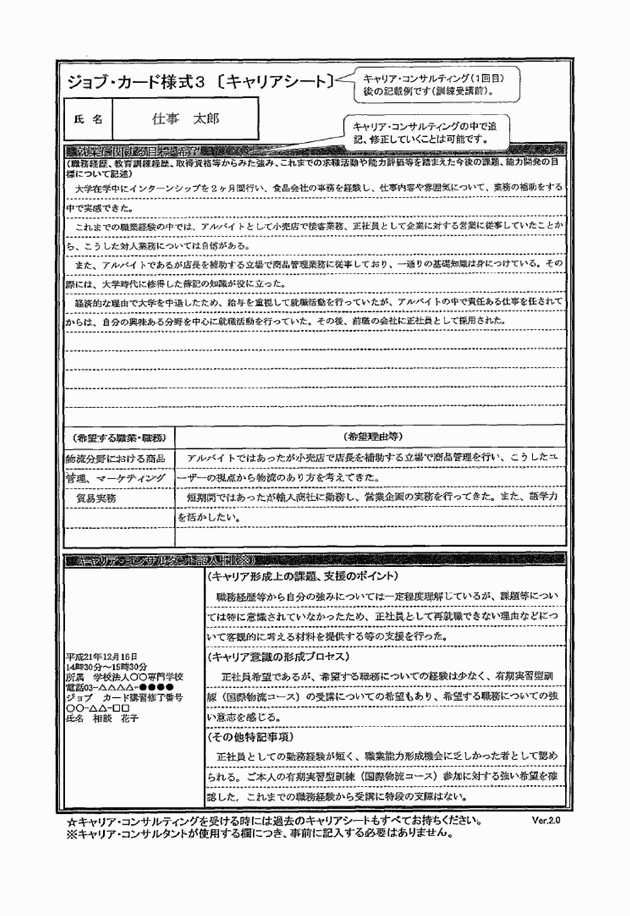 ジョブ・カード様式3 〔キャリアシート〕
キャリア・コンサルティング(1回目)
後の記載例です(訓練受講前)。
氏 名
仕事 太郎
キャリア・コンサルティングの中で追
記、修正していくことは可能です。
(職務経歴、教育訓練経歴、取得資格等からみた強み、これまでの求職活動や能力評価等を踏まえた今後の課題、能力開発の目
標について記述)
大学在学中にインターンシップを2ヶ月間行い、食品会社の事務を経験し、仕事内容や雰囲気について、業務の補助をする
中で実感できた。
これまでの職業経験の中では、アルバイトとして小売店で接客業務、正社員として企業に対する営業に従事していたことか
ら、こうした対人業務については自信がある。
また、アルバイトであるが店長を補助する立場で商品管理業務に従事しており、一通りの基礎知識は身につけている。その
際には、大学時代に修得した簿記の知識が役に立った。
経済的な理由で大学を中退したため、給与を重視して就職活動を行っていたが、アルバイトの中で責任ある仕事を任されて
からは、自分の興味ある分野を中心に就職活動を行っていた。その後、前職の会社に正社員として採用された。
(希望する職業・職務)
(希望理由等)
物流分野における商品
管理、マーケティング
貿易実務
アルバイトではあったが小売店で店長を補助する立場で商品管理を行い、こうしたユ
ーザーの視点から物流のあり方を考えてきた。
短期間ではあったが輸入商社に勤務し、営業企画の実務を行ってきた。また、語学力
を活かしたい。
平成21年12月16日
14時30分~15時30分
所属 学校法人〇〇専門学校
電話03-△△△△-●●●●
ジョブ カード講習修了番号
〇〇-△△-□□
氏名 相談 花子
(キャリア形成上の課題、支援のポイント)
職務経歴等から自分の強みについては一定程度理解しているが、課題等につい
ては特に意識されていなかったため、正社員として再就職できない理由などにつ
いて客観的に考える材料を提供する等の支援を行った。
(キャリア意識の形成プロセス)
正社員希望であるが、希望する職務についての経験は少なく、有期実習型訓
練(国際物流コース)の受講についての希望もあり、希望する職務についての強
い意志を感じる。
(その他特記事項)
正社員としての勤務経験が短く、職業能力形成機会に乏しかった者として認め
られる。ご本人の有期実習型訓練(国際物流コース)参加に対する強い希望を確
認した。これまでの職務経験から受講に特段の支障はない。
☆キャリア・コンサルティングを受ける時には過去のキャリアシートもすべてお持ちください。
Ver.2.0
※キャリア・コンサルタントが使用する欄につき、事前に記入する必要はありません。